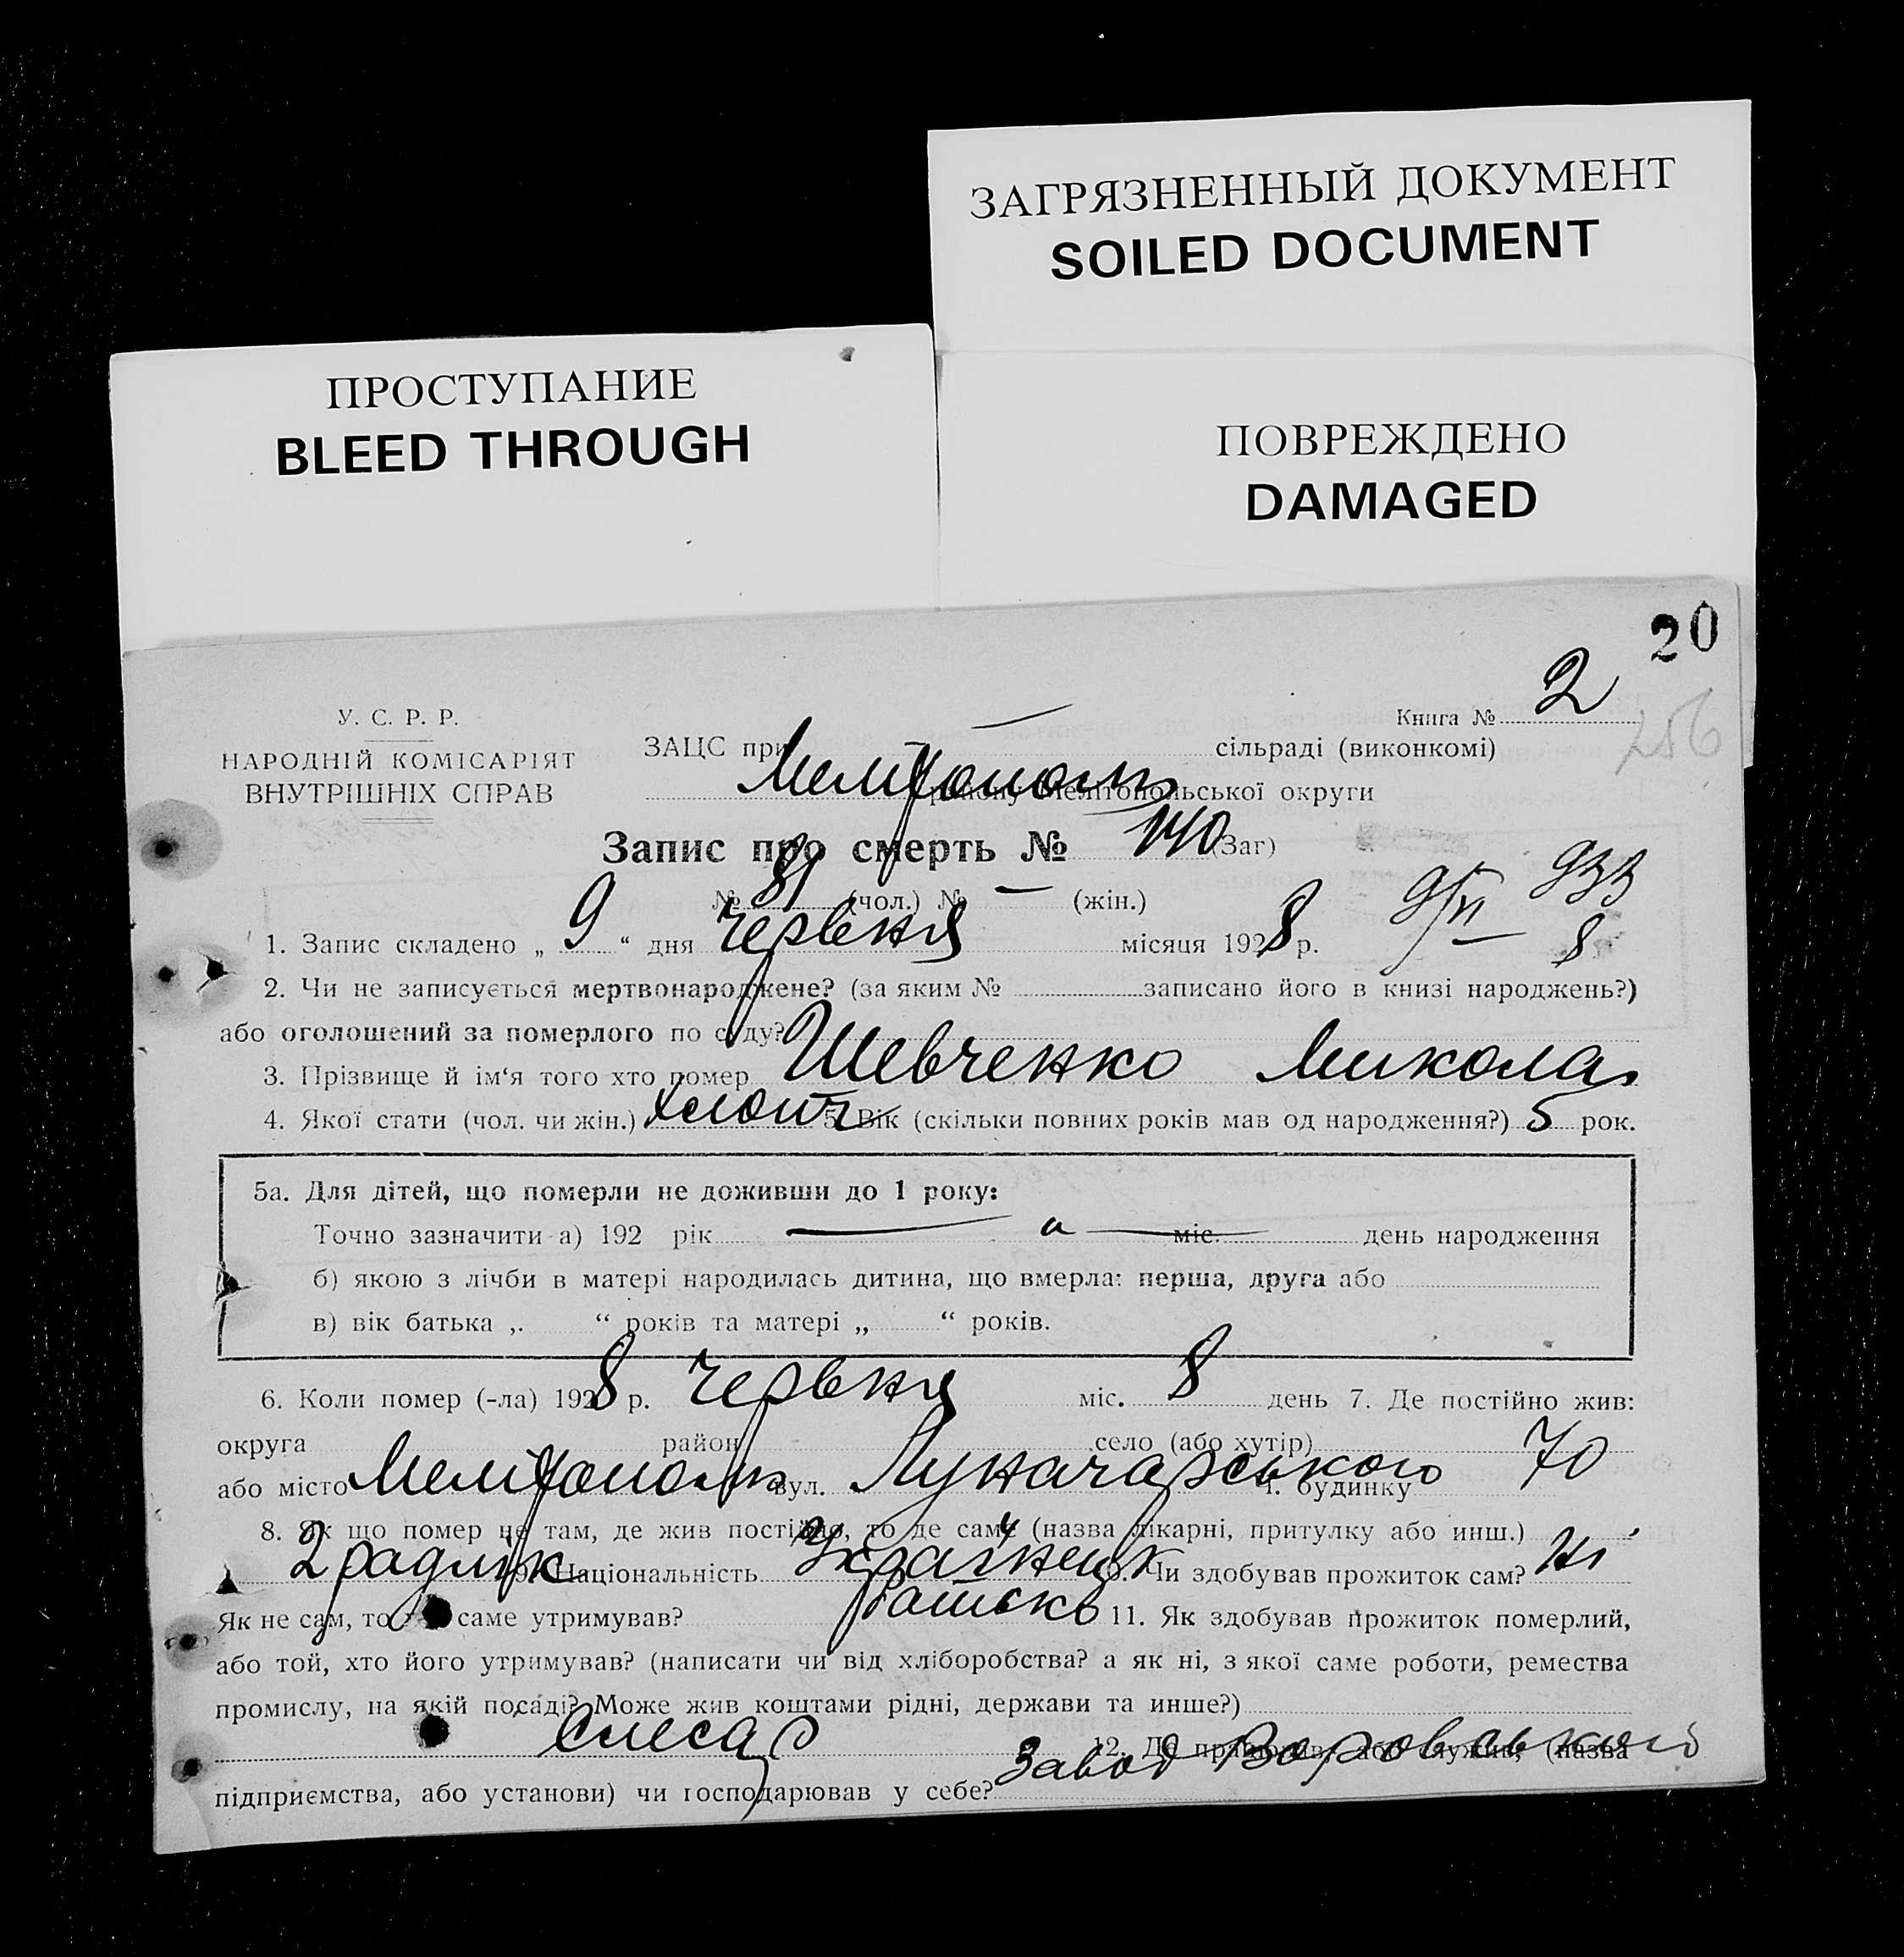 ЗАГРЯЗНЕННЫЙ ДОКУМЕНТ
SOILED DOCUMENT
ПРОСТУПАНИЕ
BLEED THROUGH
ПОВРЕЖДЕНО
DAMAGED
20
Книга № 2
256
У. С. Р. Р.
НАРОДНІЙ КОМІСАРІЯТ
ВНУТРІШНІХ СПРАВ
ЗАЦС при — сільраді (виконкомі)
Мелітополь району Мелітопольської округи
Запис про смерть № 140 (Заг)
№ 81 (чол.) № — (жін.)
9/VI 933
8
1. Запис складено „ 9 “ дня червня місяця 1928 р.
2. Чи не записується мертвонароджене? (за яким № записано його в книзі народжень?)
або оголошений за померлого по суду?
3. Прізвище й ім‘я того хто помер Шевченко Микола
4. Якої стати (чол. чи жін.) хлопч 5. Вік (скільки повних років мав од народження?) 5 рок.
5а. Для дітей, що померли не доживши до 1 року:
Точно зазначити а) 192 рік — міс. день народження
б) якою з лічби в матері народилась дитина, що вмерла: перша, друга або
в) вік батька „ “ років та матері „ “ років.
6. Коли помер (-ла) 1928 р. червня міс. 8 день 7. Де постійно жив:
округа район село (або хутір)
або місто Мелітополь вул. Луначарського ч. будинку 70
8. Як що помер не там, де жив постійно, то де саме (назва лікарні, притулку або инш.)
2 радлік 9. Національність Українець 10. Чи здобував прожиток сам? Ні
Як не сам, то саме утримував? батько 11. Як здобував прожиток померлий,
або той, хто його утримував? (написати чи від хліборобства? а як ні, з якої саме роботи, ремества
промислу, на якій посаді? Може жив коштами рідні, держави та инше?)
Слесар 12. Де працював, або служив, (назва
підприємства, або установи) чи господарював у себе? Завод Воровський